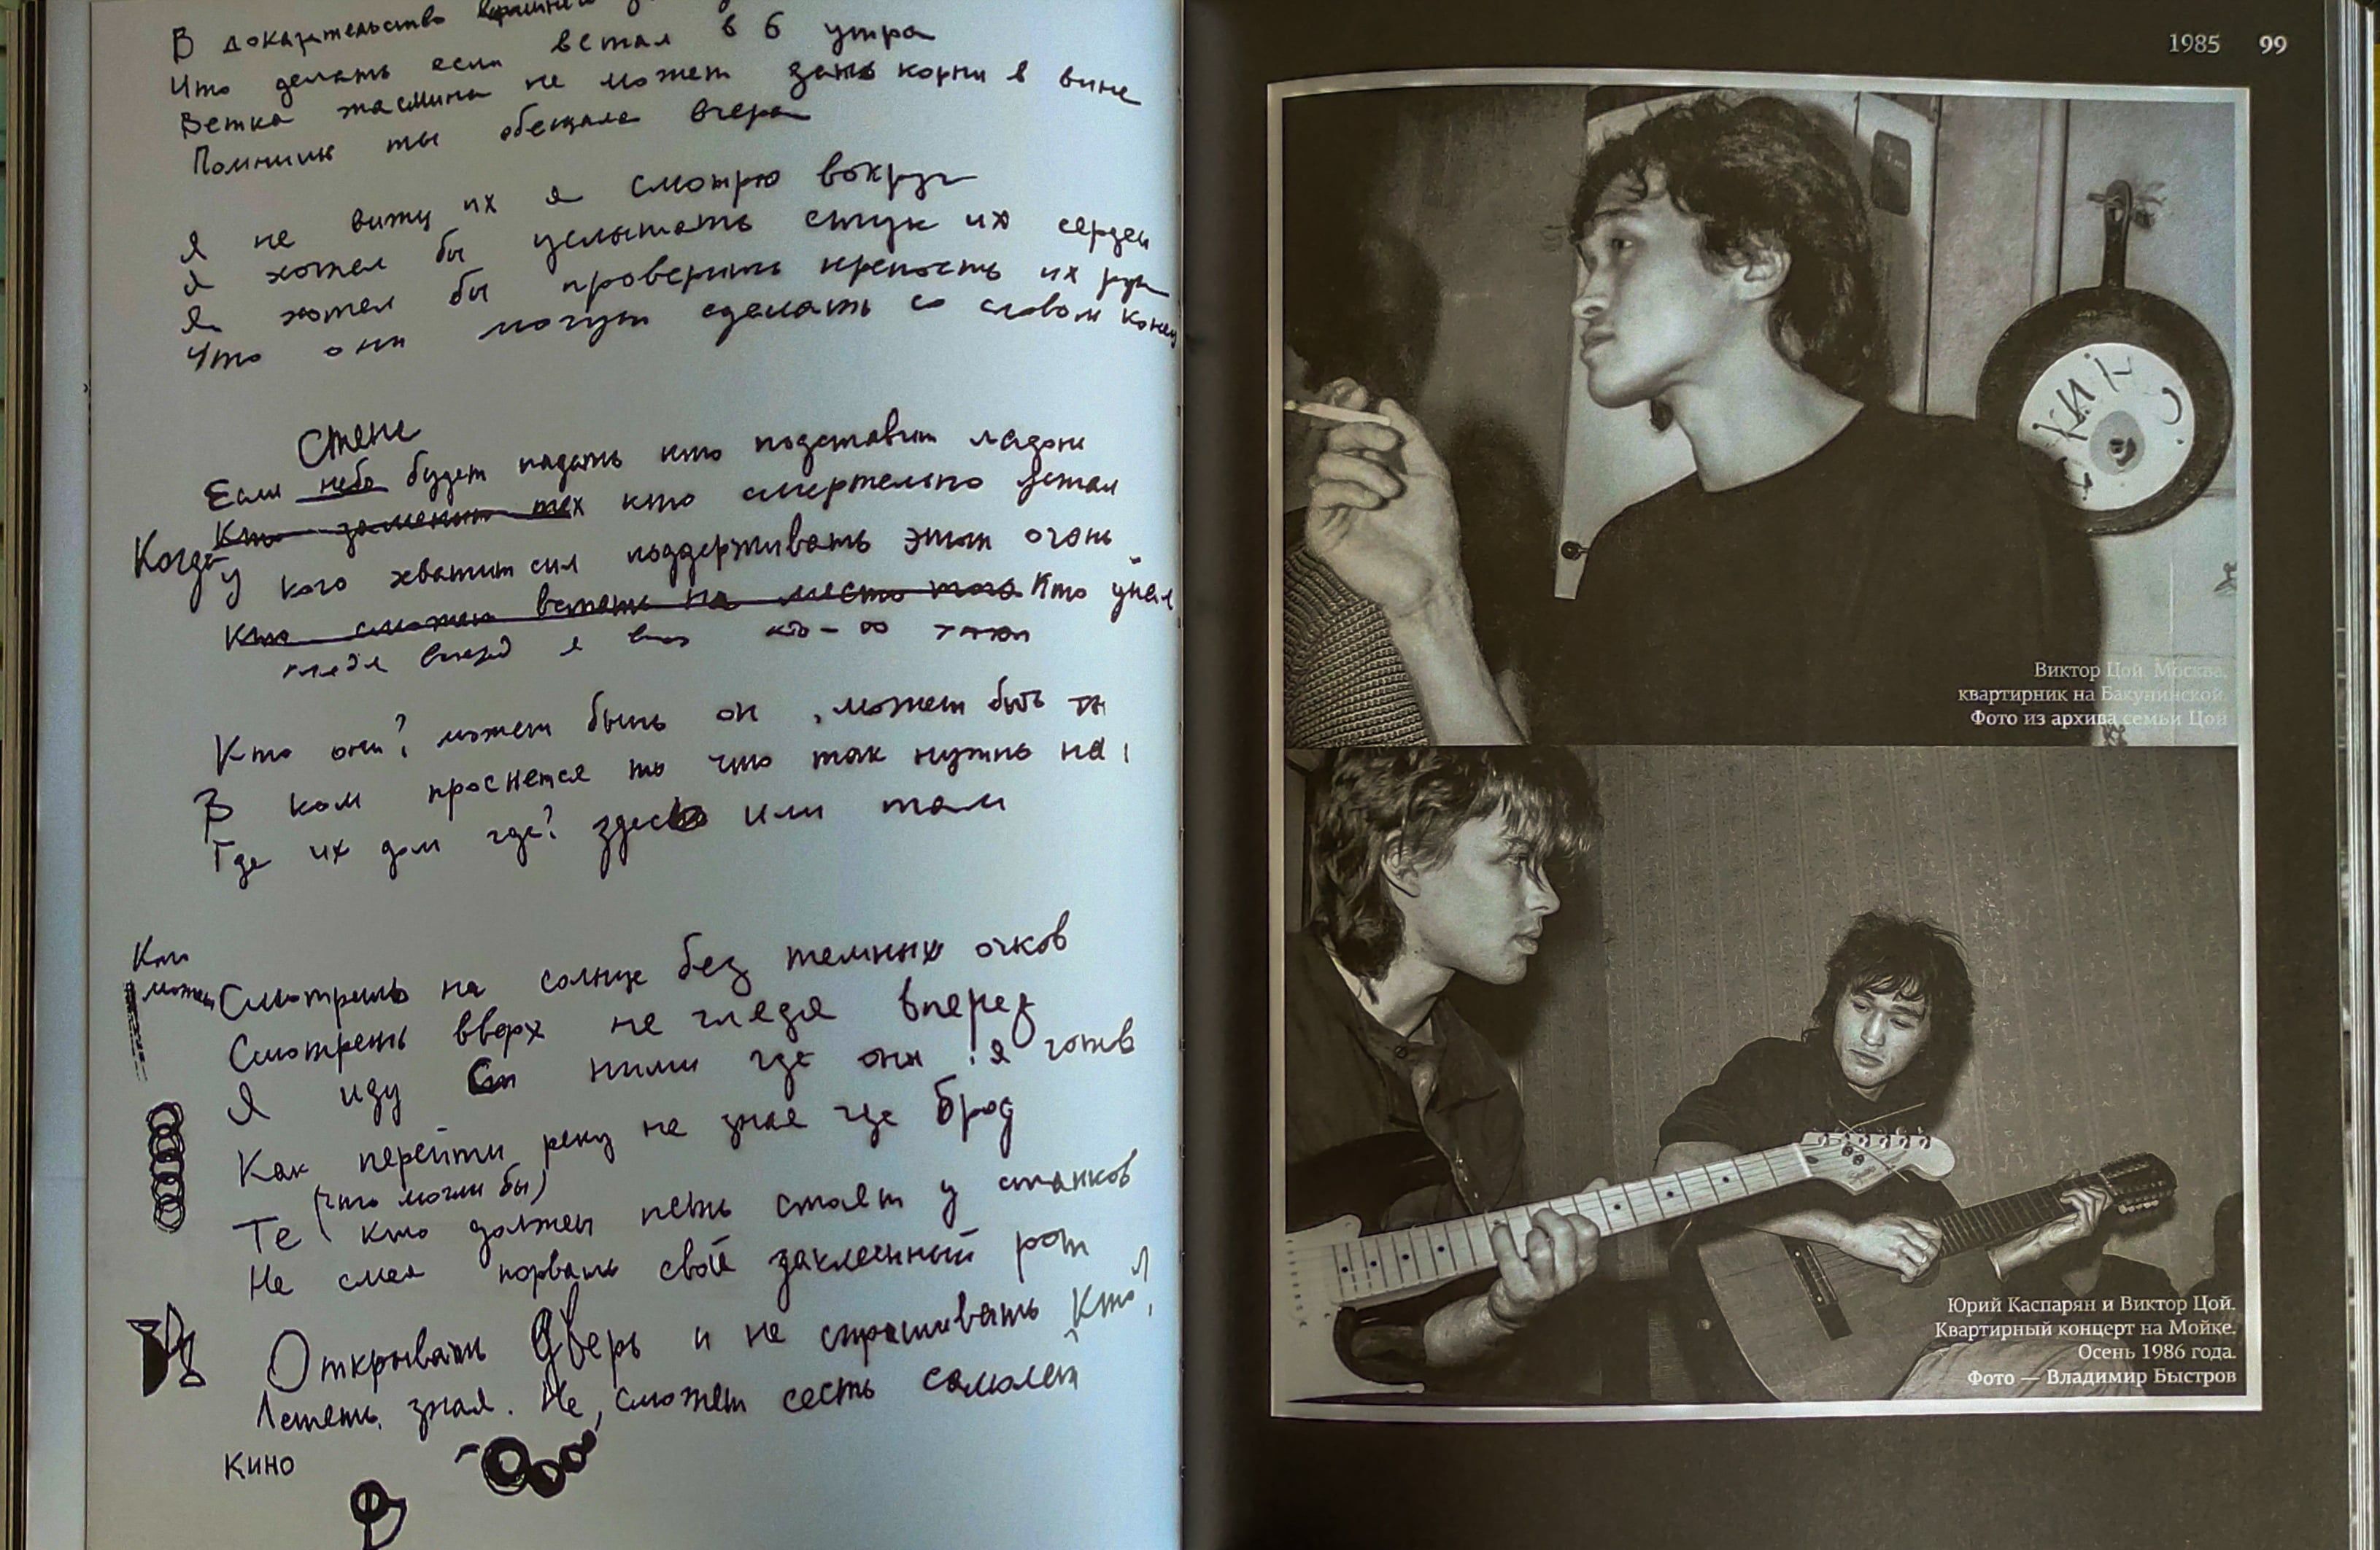 В доказательство
Что делать если встал в 6 утра
Ветка жасмина не может дать корни в вине
Помнишь ты обещала вчера
Я не вижу их я смотрю вокруг
Я хотел бы услышать стук их сердец
Я хотел бы проверить крепость их рук
Что они могут сделать со словом конец
Стена
Если небо будет падать кто подставит ладонь
Кто заменит тех кто смертельно устал
Когда
У кого хватит сил поддерживать этот огонь
Кто сможет встать на место того Кто упал
глядя вперед я вижу кто-то
Кто они? может быть он, может быть ты
В ком проснется то что так нужно на
Где их дом где? здесь или там
Кто
может
Смотреть на солнце без темных очков
Смотреть вверх не глядя вперед
Я иду с ними где они? я готов
Как перейти реку не зная где брод
(что могли бы)
Те кто должен петь стоят у станков
Не смея порвать свой заклееный рот
Открывать дверь и не спрашивать кто?
Лететь, зная. Не сможет сесть самолет
КИНО
1985 99
КИНО
Виктор Цой. Москва,
квартирник на Бакунинской.
Фото из архива семьи Цой
Юрий Каспарян и Виктор Цой.
Квартирный концерт на Мойке.
Осень 1986 года.
Фото — Владимир Быстров